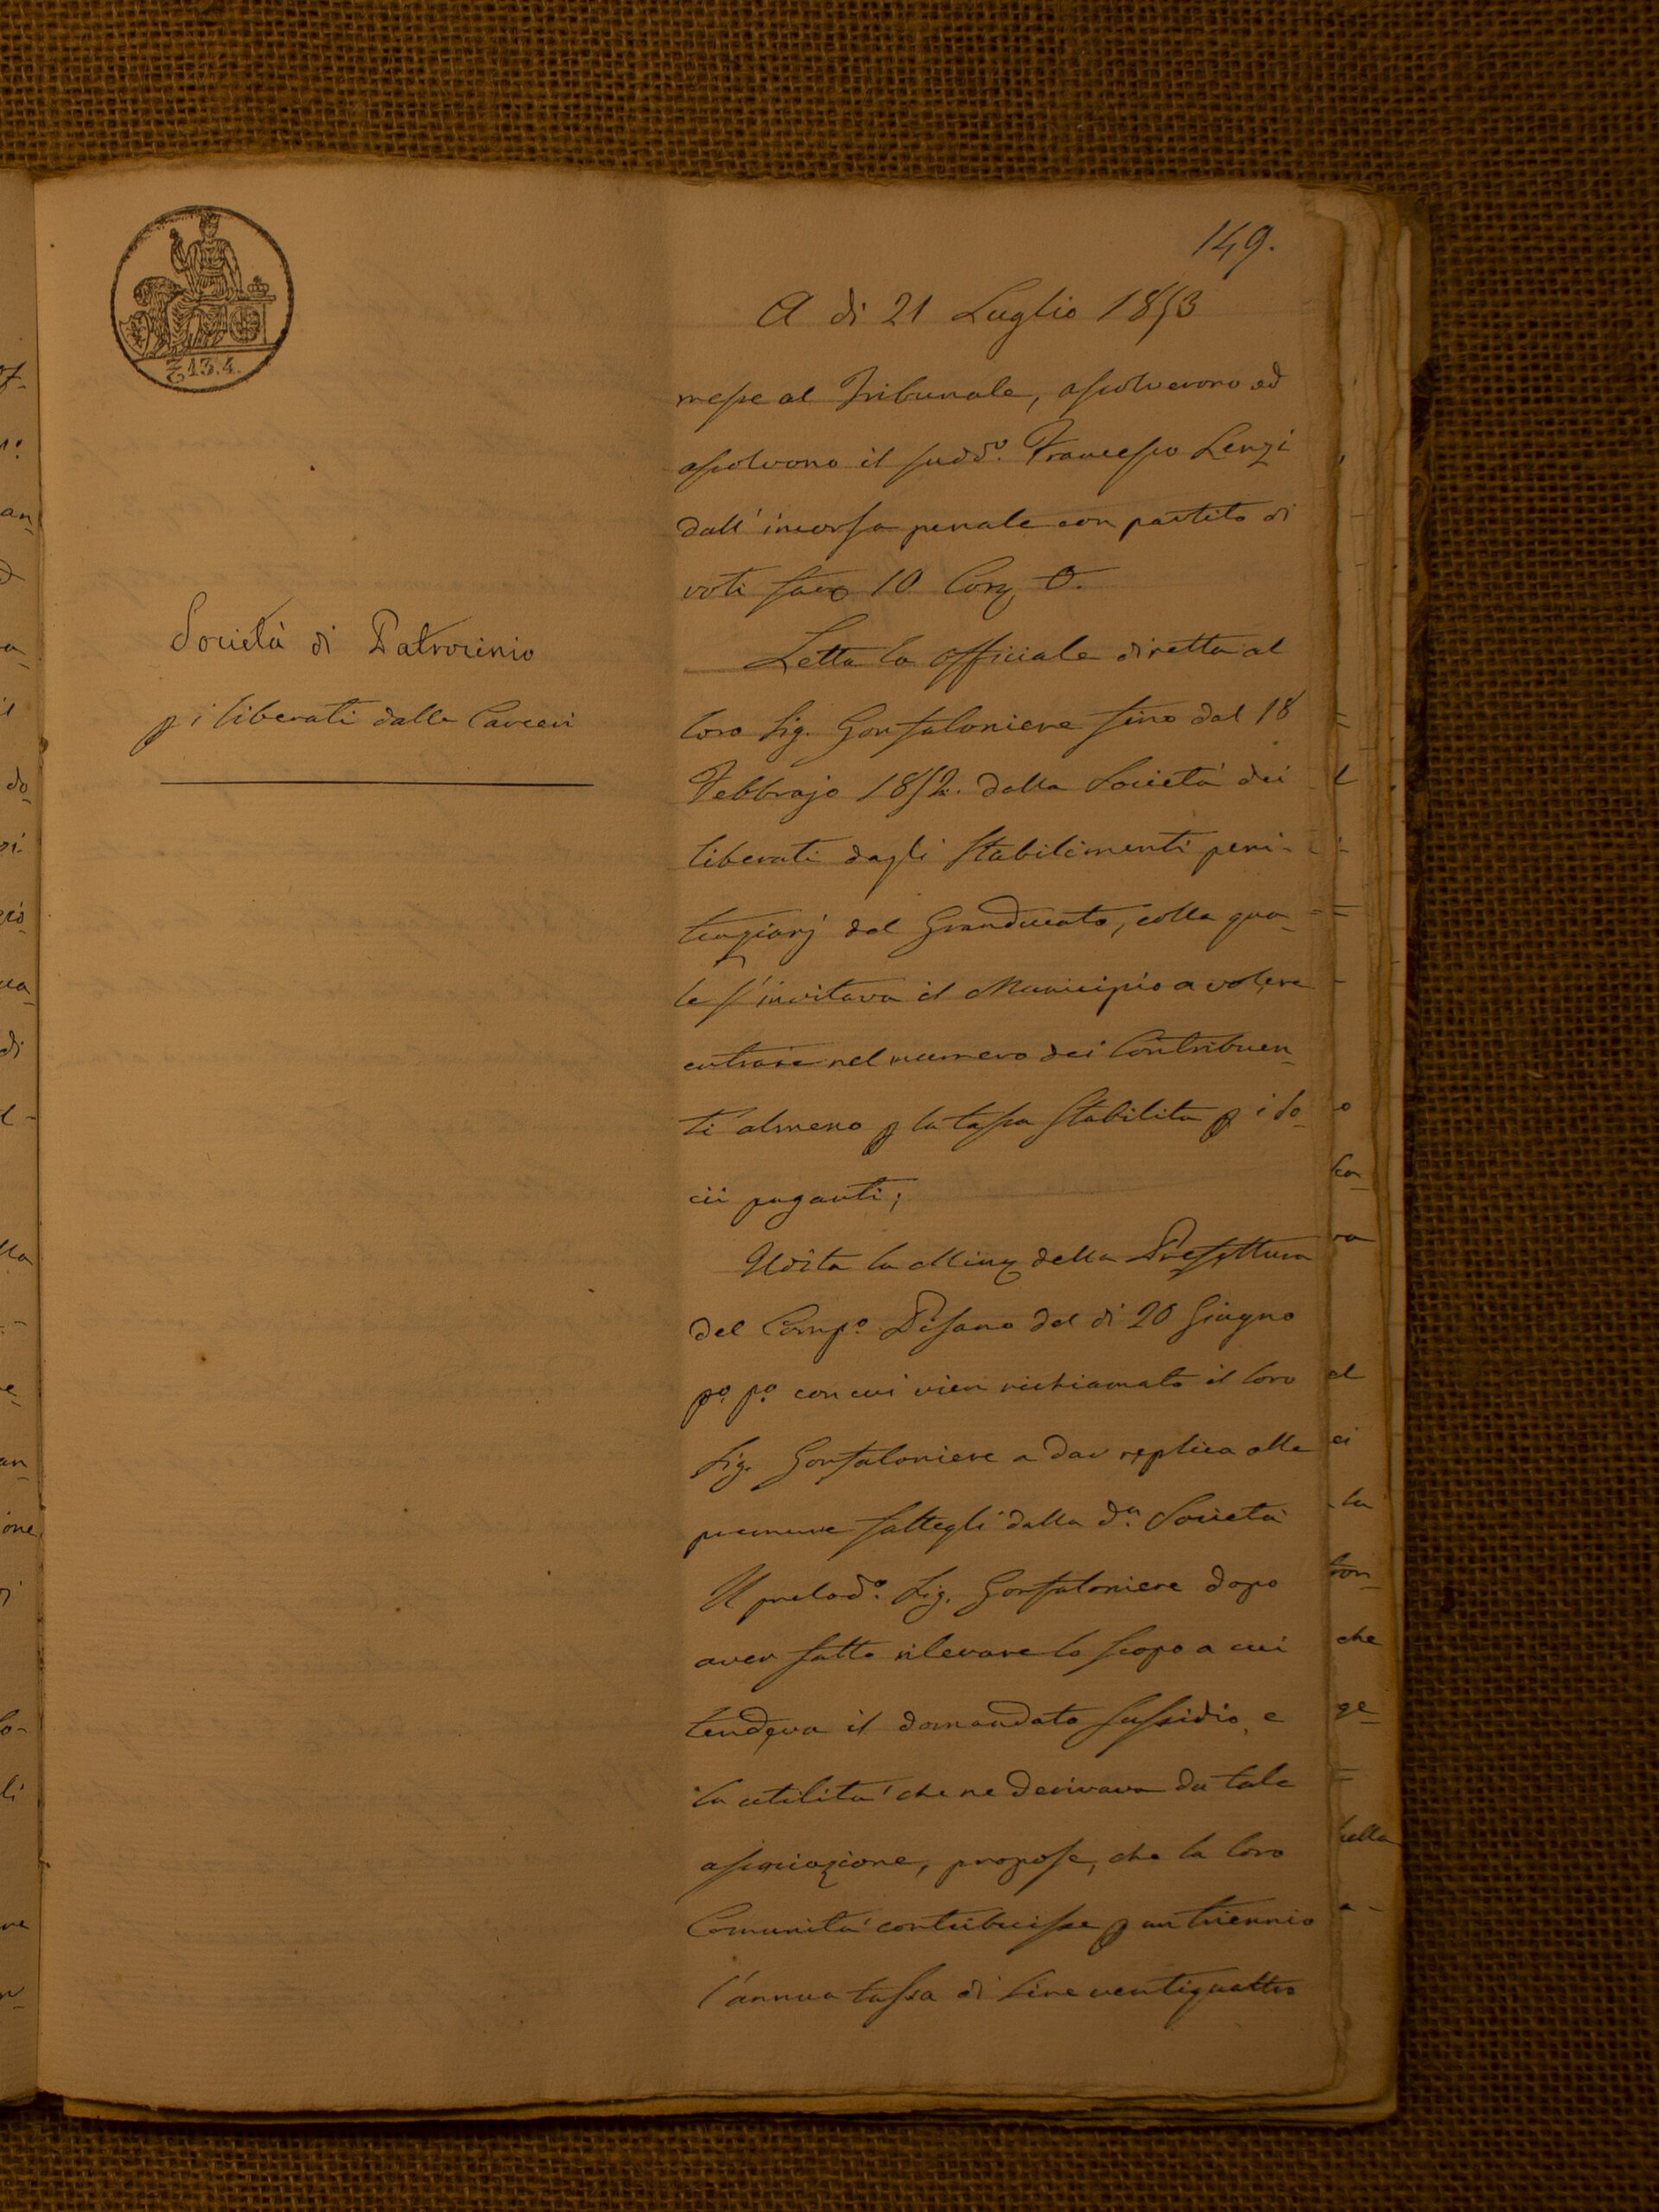 149.
A di 21 Luglio 1853
messe al Tribunale, assolverono ed
assolvono il sudd.o Francesco Lenzi
dall'incorsa penale con partito di
voti fav 10 Con 0.
Società di Patrocinio
p i liberati dalle Carceri
Letta la officiale diretta al
loro Sig. Gonfaloniere fino dal 18
Febbrajo 1852. dalla Società dei
liberati dagli Stabilimenti peni-
tenziarj del Granducato, colla qua-
le s'invitava il Municipio a volere
entrare nel numero dei Contribuen-
ti almeno p la tassa stabilita p i so-
cii paganti;
Udita la della Prefettura
del Comp.o Pisano del di 20 Giugno
p.o p.o con cui vien richiamato il loro
Sig. Gonfaloniere a dar replica alle
premure fattegli dalla d.a Società
Il prelod.o Sig. Gonfaloniere dopo
aver fatto rilevare lo scopo a cui
tendeva il domandato sussidio, e
la utilità che ne derivava da tale
associazione, propose, che la loro
Comunità contribuisse p un triennio
l'annua tassa di Lire ventiquattro
₤13.4.